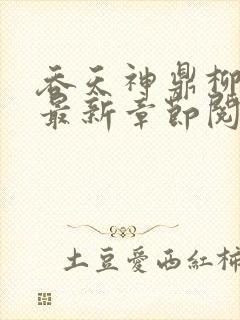 吞天神鼎柳
最新章節閱
土豆愛西紅柿